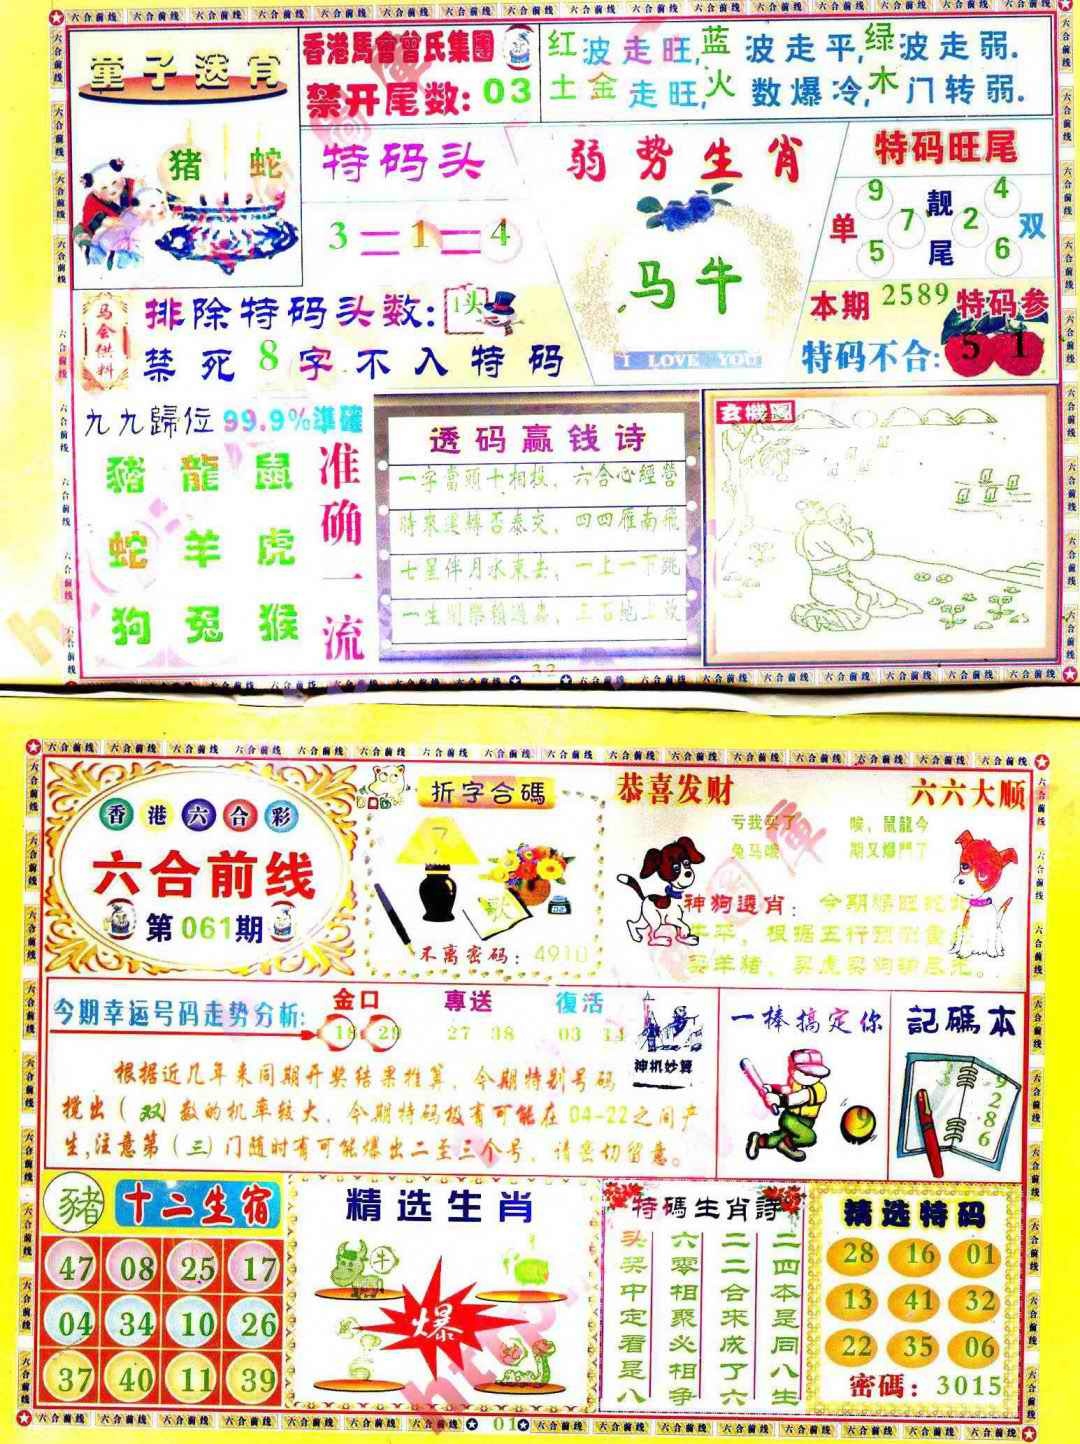 童子送肖
猪 蛇
香港馬會曾氏集團
禁开尾数:03
红波走旺,蓝波走平,绿波走弱.
土金走旺,火数爆冷,木门转弱.
特码头
3=1=4
弱势生肖
马牛
I LOVE YOU
特码旺尾
单 9 7 5 靓尾 4 2 6 双
本期2589特码参
特码不合:51
马会供料
排除特码头数:1头
禁死8字不入特码
九九歸位 99.9%準確
豬 龍 鼠
蛇 羊 虎
狗 兔 猴
准确一流
透码赢钱诗
一字當頭十相投、六合心經營
時來運轉否泰交、四四雁南飛
七星伴月水東去、一上一下跳
玄機圖
32
香港六合彩
六合前线
第061期
折字合碼
7
歌
不离密码:4910
恭喜发财
六六大顺
亏我买了
兔马哦
唉,鼠龍今
期又爆門了
神狗透肖:
今期幸运号码走势分析:
金口
18 29
專送
27 38
復活
03 14
神机妙算
根据近几年来同期开奖结果推算,今期特别号码
搅出(双)数的机率较大,今期特码极有可能在04-22之间产
生,注意第(三)门随时有可能爆出二至三个号,请密切留意。
一棒搞定你
9
記碼本
3 9
2
8
6
豬
十二生宿
47 08 25 17
04 34 10 26
37 40 11 39
精选生肖
牛
爆
特碼生肖詩
二四本是同八生
二二合来成了六
六零相聚必相争
头奖中定看是八
精选特码
28 16 01
13 41 32
22 35 06
密碼:3015
01